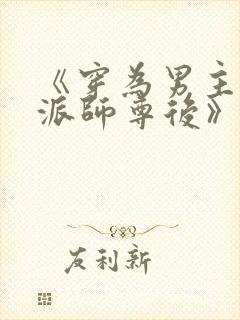 《穿為男主
派師尊後》
友利新